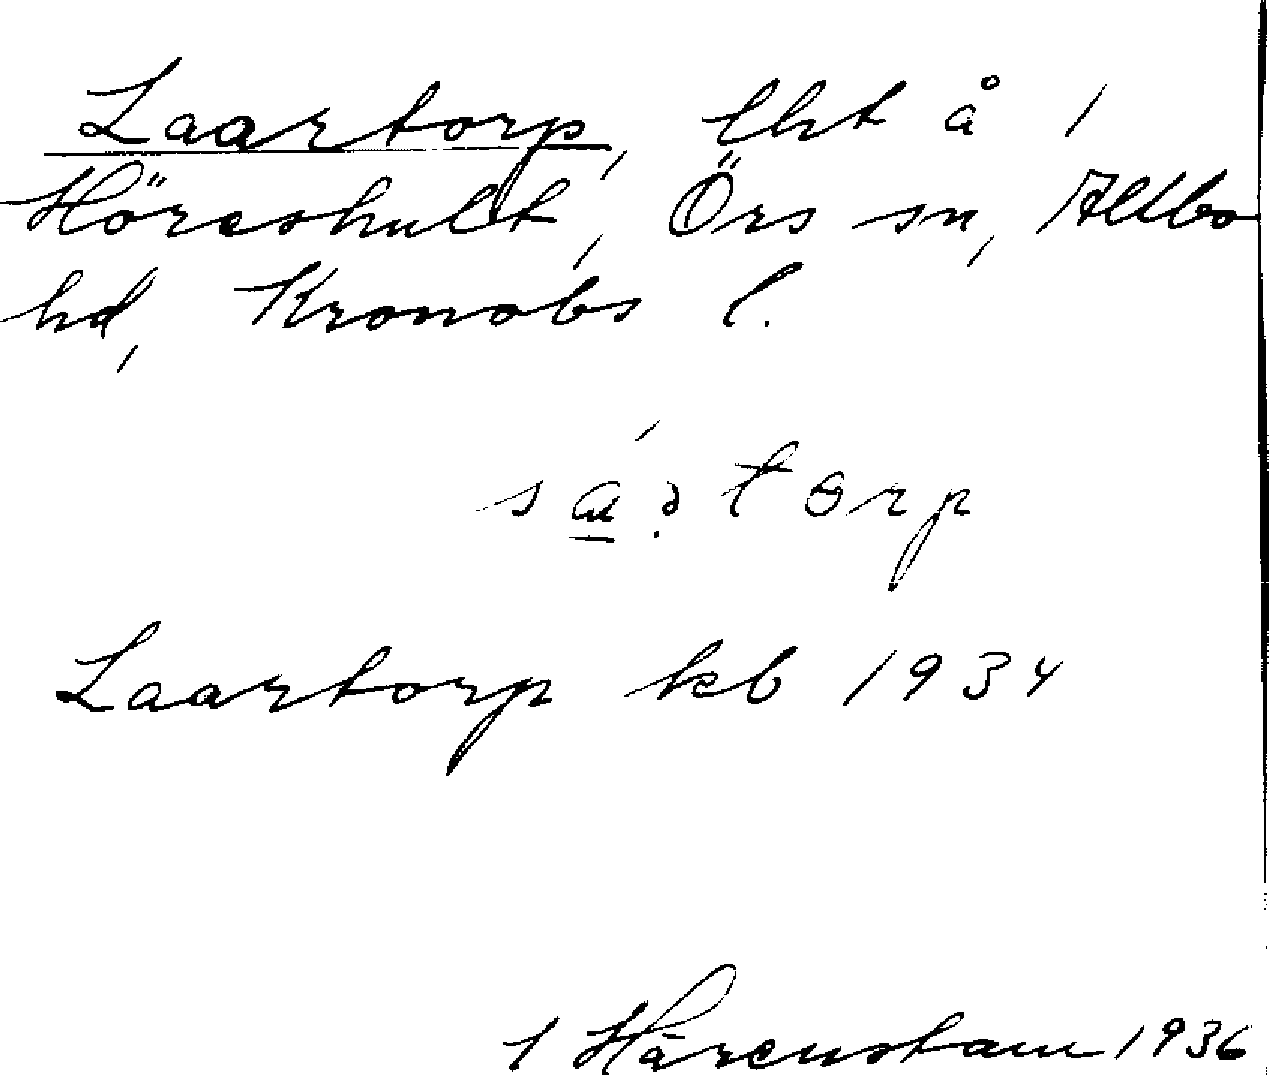 Laartorp, lht å 1
Höreshult, Örs sn, Allbo
hd, Kronobs l.
Laartorp kb 1934
Hårenstam 1936